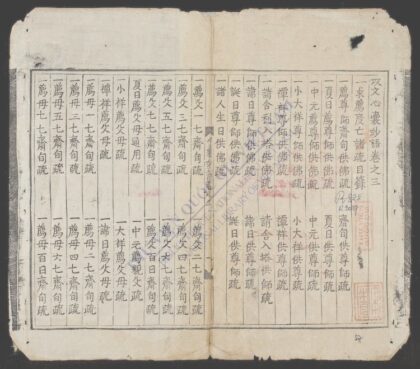 攻文心囊抄語卷之三
一求薦度亡諸疏目錄
一薦尊師齋旬供佛疏 齋旬供尊師疏
一夏日薦尊師供佛疏 夏日供尊師疏
一中元薦尊師供佛疏 中元供尊師疏
一小大祥尊師供佛疏 小大祥尊師疏
一禫祥尊師供佛疏 禫祥供尊師疏
一請舍利入塔供佛疏 請舍入塔供師疏
一諱日尊師供佛疏 諱日供尊師疏
一誕日尊師供佛疏 誕日供尊師疏
一諸人生日供佛疏
一薦父一七齋旬疏 一薦父二七齋旬疏
一薦父三七齋旬疏 一薦父四七齋旬疏
一薦父五七齋旬疏 一薦父六七齋旬疏
一薦父七七齋旬疏 一薦父百日齋旬疏
一夏日薦父母通用疏 一中元薦親父疏
一小祥薦父母疏 一大祥薦父母疏
一禫祥薦父母疏 一諱日薦父母疏
一薦母一七齋旬疏 一薦母二七齋旬疏
一薦母三七齋旬疏 一薦母四七齋旬疏
一薦母五七齋旬疏 一薦母六七齋旬疏
一薦母七七齋旬疏 一薦母百日齋旬疏